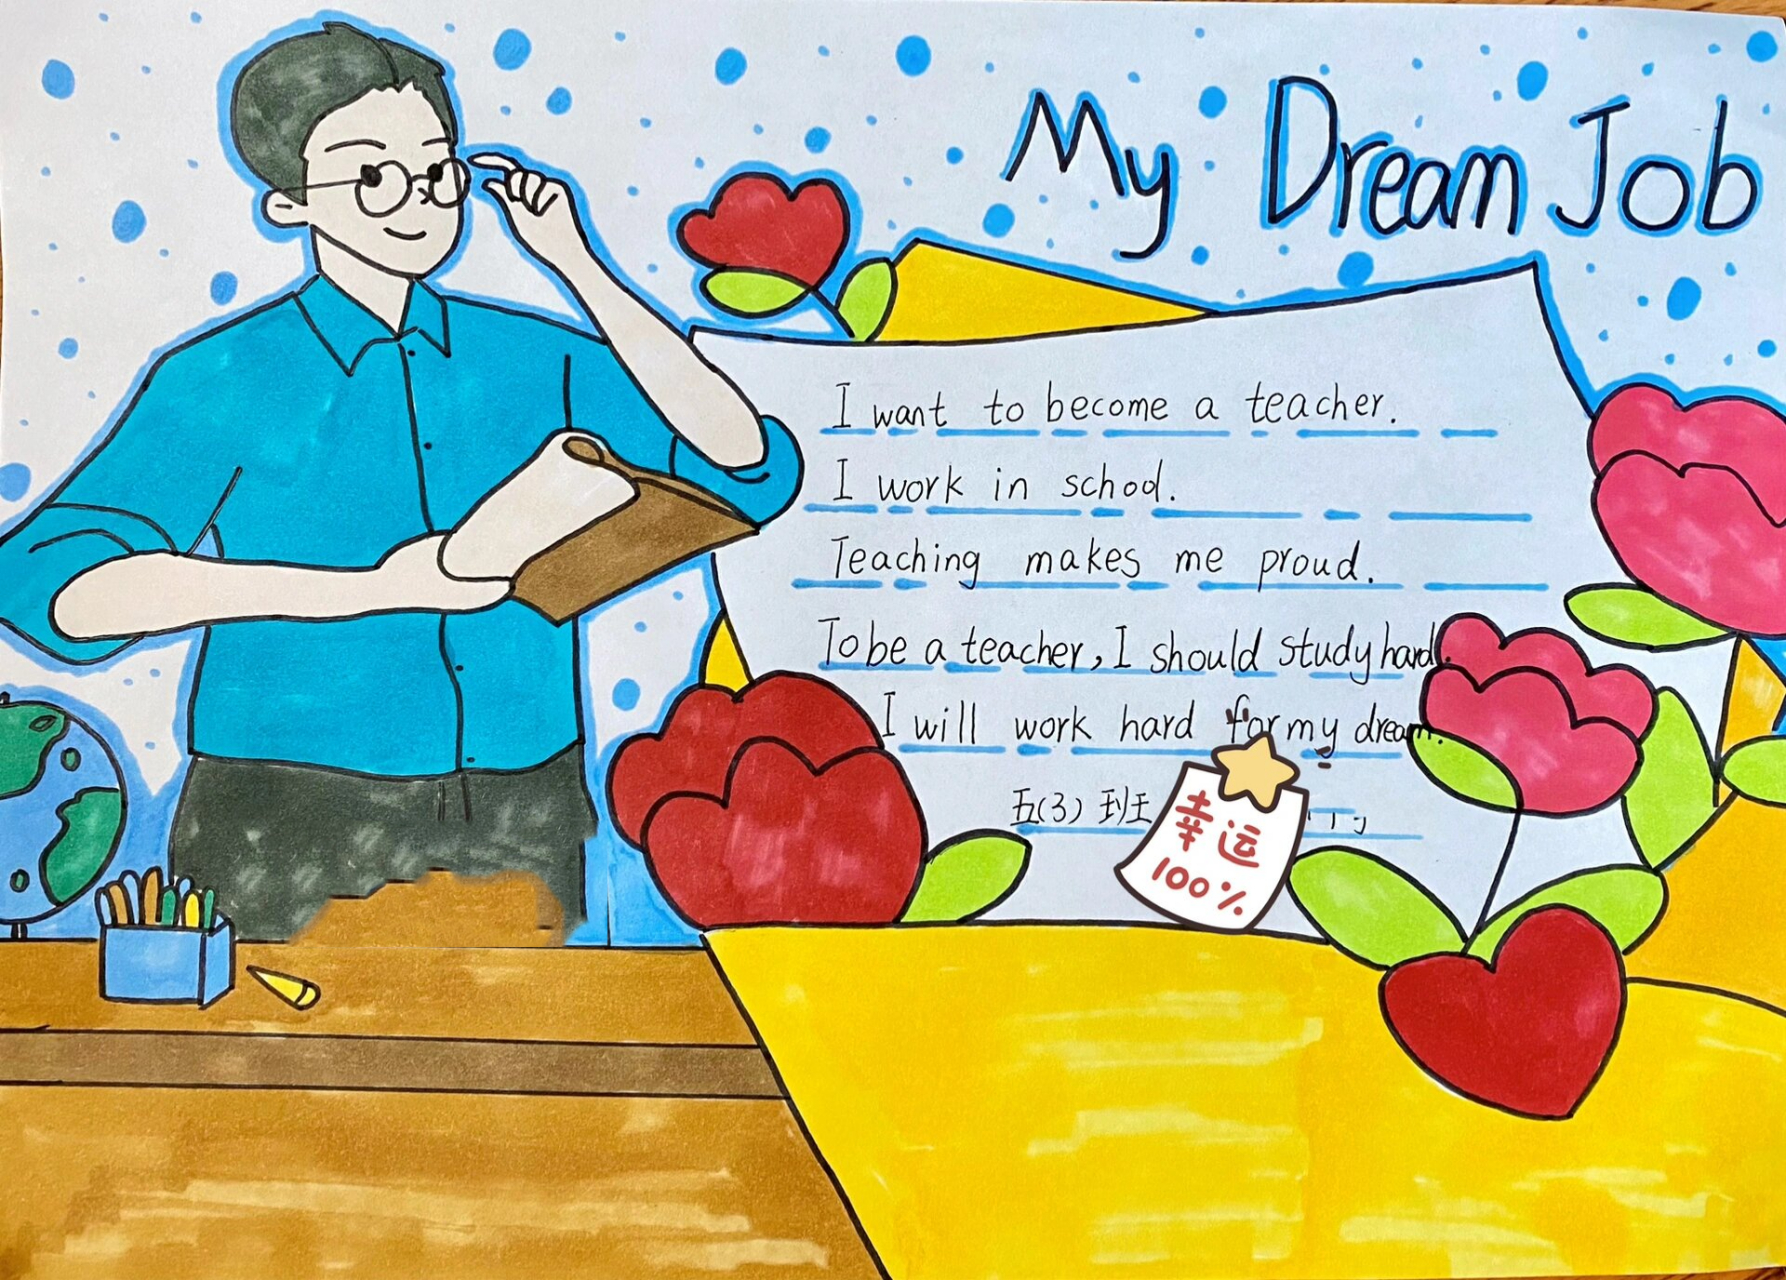 My Dream Job
I want to become a teacher.
I work in school.
Teaching makes me proud.
To be a teacher, I should study hard.
I will work hard for my dream.
五(3)班
幸运
100%